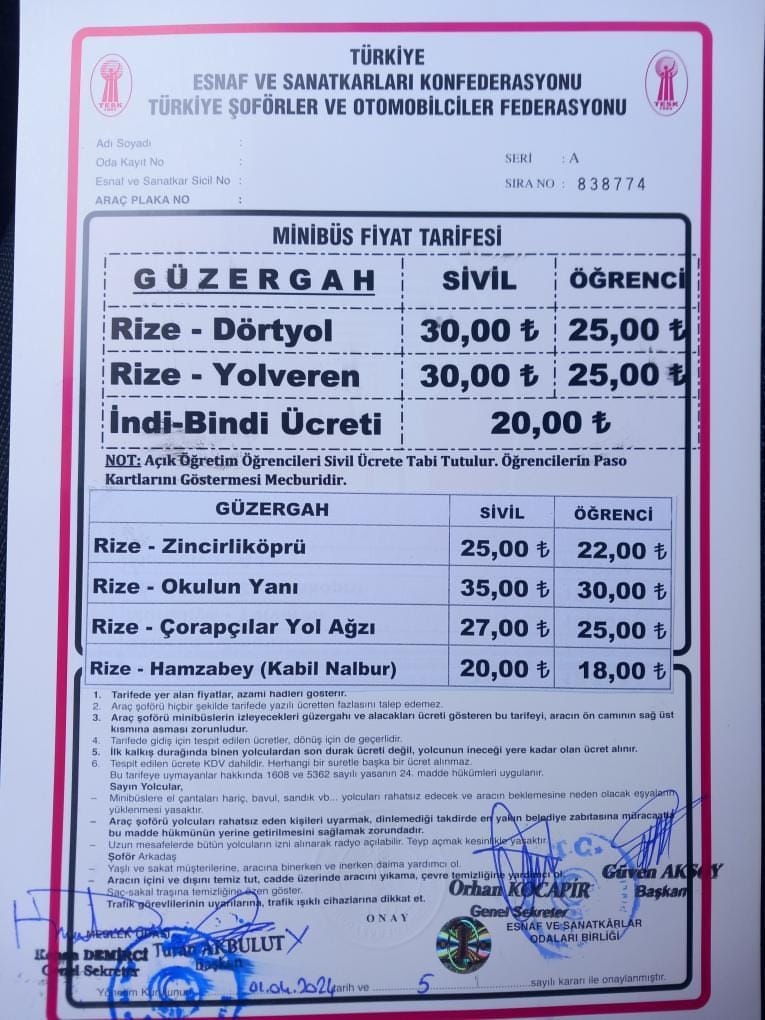 TÜRKİYE
ESNAF VE SANATKARLARI KONFEDERASYONU
TÜRKİYE ŞOFÖRLER VE OTOMOBİLCİLER FEDERASYONU
TESK
TESK
Adı Soyadı :
Oda Kayıt No :
Esnaf ve Sanatkar Sicil No :
ARAÇ PLAKA NO :
SERİ : A
SIRA NO : 838774
MİNİBÜS FİYAT TARİFESİ
GÜZERGAH SİVİL ÖĞRENCİ
Rize - Dörtyol 30,00 ₺ 25,00 ₺
Rize - Yolveren 30,00 ₺ 25,00 ₺
İndi-Bindi Ücreti 20,00 ₺
NOT: Açık Öğretim Öğrencileri Sivil Ücrete Tabi Tutulur. Öğrencilerin Paso
Kartlarını Göstermesi Mecburidir.
GÜZERGAH SİVİL ÖĞRENCİ
Rize - Zincirliköprü 25,00 ₺ 22,00 ₺
Rize - Okulun Yanı 35,00 ₺ 30,00 ₺
Rize - Çorapçılar Yol Ağzı 27,00 ₺ 25,00 ₺
Rize - Hamzabey (Kabil Nalbur) 20,00 ₺ 18,00 ₺
1. Tarifede yer alan fiyatlar, azami hadleri gösterir.
2. Araç şoförü hiçbir şekilde tarifede yazılı ücretten fazlasını talep edemez.
3. Araç şoförü minibüslerin izleyecekleri güzergahı ve alacakları ücreti gösteren bu tarifeyi, aracın ön camının sağ üst
kısmına asması zorunludur.
4. Tarifede gidiş için tespit edilen ücretler, dönüş için de geçerlidir.
5. İlk kalkış durağında binen yolculardan son durak ücreti değil, yolcunun ineceği yere kadar olan ücret alınır.
6. Tespit edilen ücrete KDV dahildir. Herhangi bir suretle başka bir ücret alınmaz.
Bu tarifeye uymayanlar hakkında 1608 ve 5362 sayılı yasanın 24. madde hükümleri uygulanır.
Sayın Yolcular,
– Minibüslere el çantaları hariç, bavul, sandık vb... yolcuları rahatsız edecek ve aracın beklemesine neden olacak eşyaların
yüklenmesi yasaktır.
– Araç şoförü yolcuları rahatsız eden kişileri uyarmak, dinlemediği takdirde en yakın belediye zabıtasına müracaatla
bu madde hükmünün yerine getirilmesini sağlamak zorundadır.
– Uzun mesafelerde bütün yolcuların izni alınarak radyo açılabilir. Teyp açmak kesinlikle yasaktır.
Şoför Arkadaş
– Yaşlı ve sakat müşterilerine, aracına binerken ve inerken daima yardımcı ol.
– Aracın içini ve dışını temiz tut, cadde üzerinde aracını yıkama, çevre temizliğine yardımcı ol.
– Saç-sakal traşına temizliğine özen göster.
Trafik görevlilerinin uyarılarına, trafik ışıklı cihazlarına dikkat et.
T.C.
Orhan KOCAPIR
Genel Sekreter
Güven AKSOY
Başkan
ONAY
ESNAF VE SANATKÂRLAR
ODALARI BİRLİĞİ
MESLEK ODASI
Kenan DEMİRCİ
Genel Sekreter
Turan AKBULUT
Başkan
Yönetim Kurulunun 01.04.2024 tarih ve 5 sayılı kararı ile onaylanmıştır.